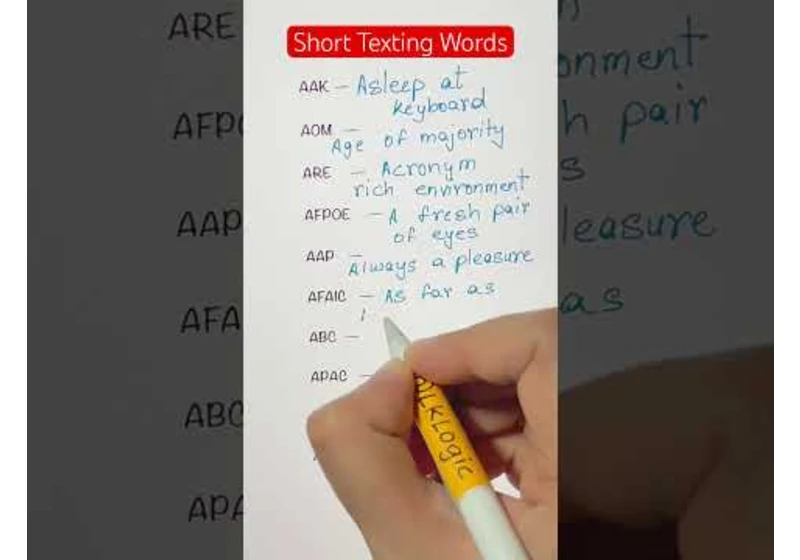 Short Texting Words
AAK – Asleep at
keyboard
AOM –
Age of majority
ARE – Acronym
rich environment
AFPOE – A fresh pair
of eyes
AAP –
Always a pleasure
AFAIC – As far as
I
ABC –
APAC –
LKLogic
ARE
AFPO
AAP
AFA
ABC
APA
onment
h pair
s
leasure
as